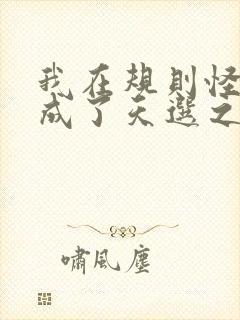 我在規則怪
成了天選之
嘯風塵